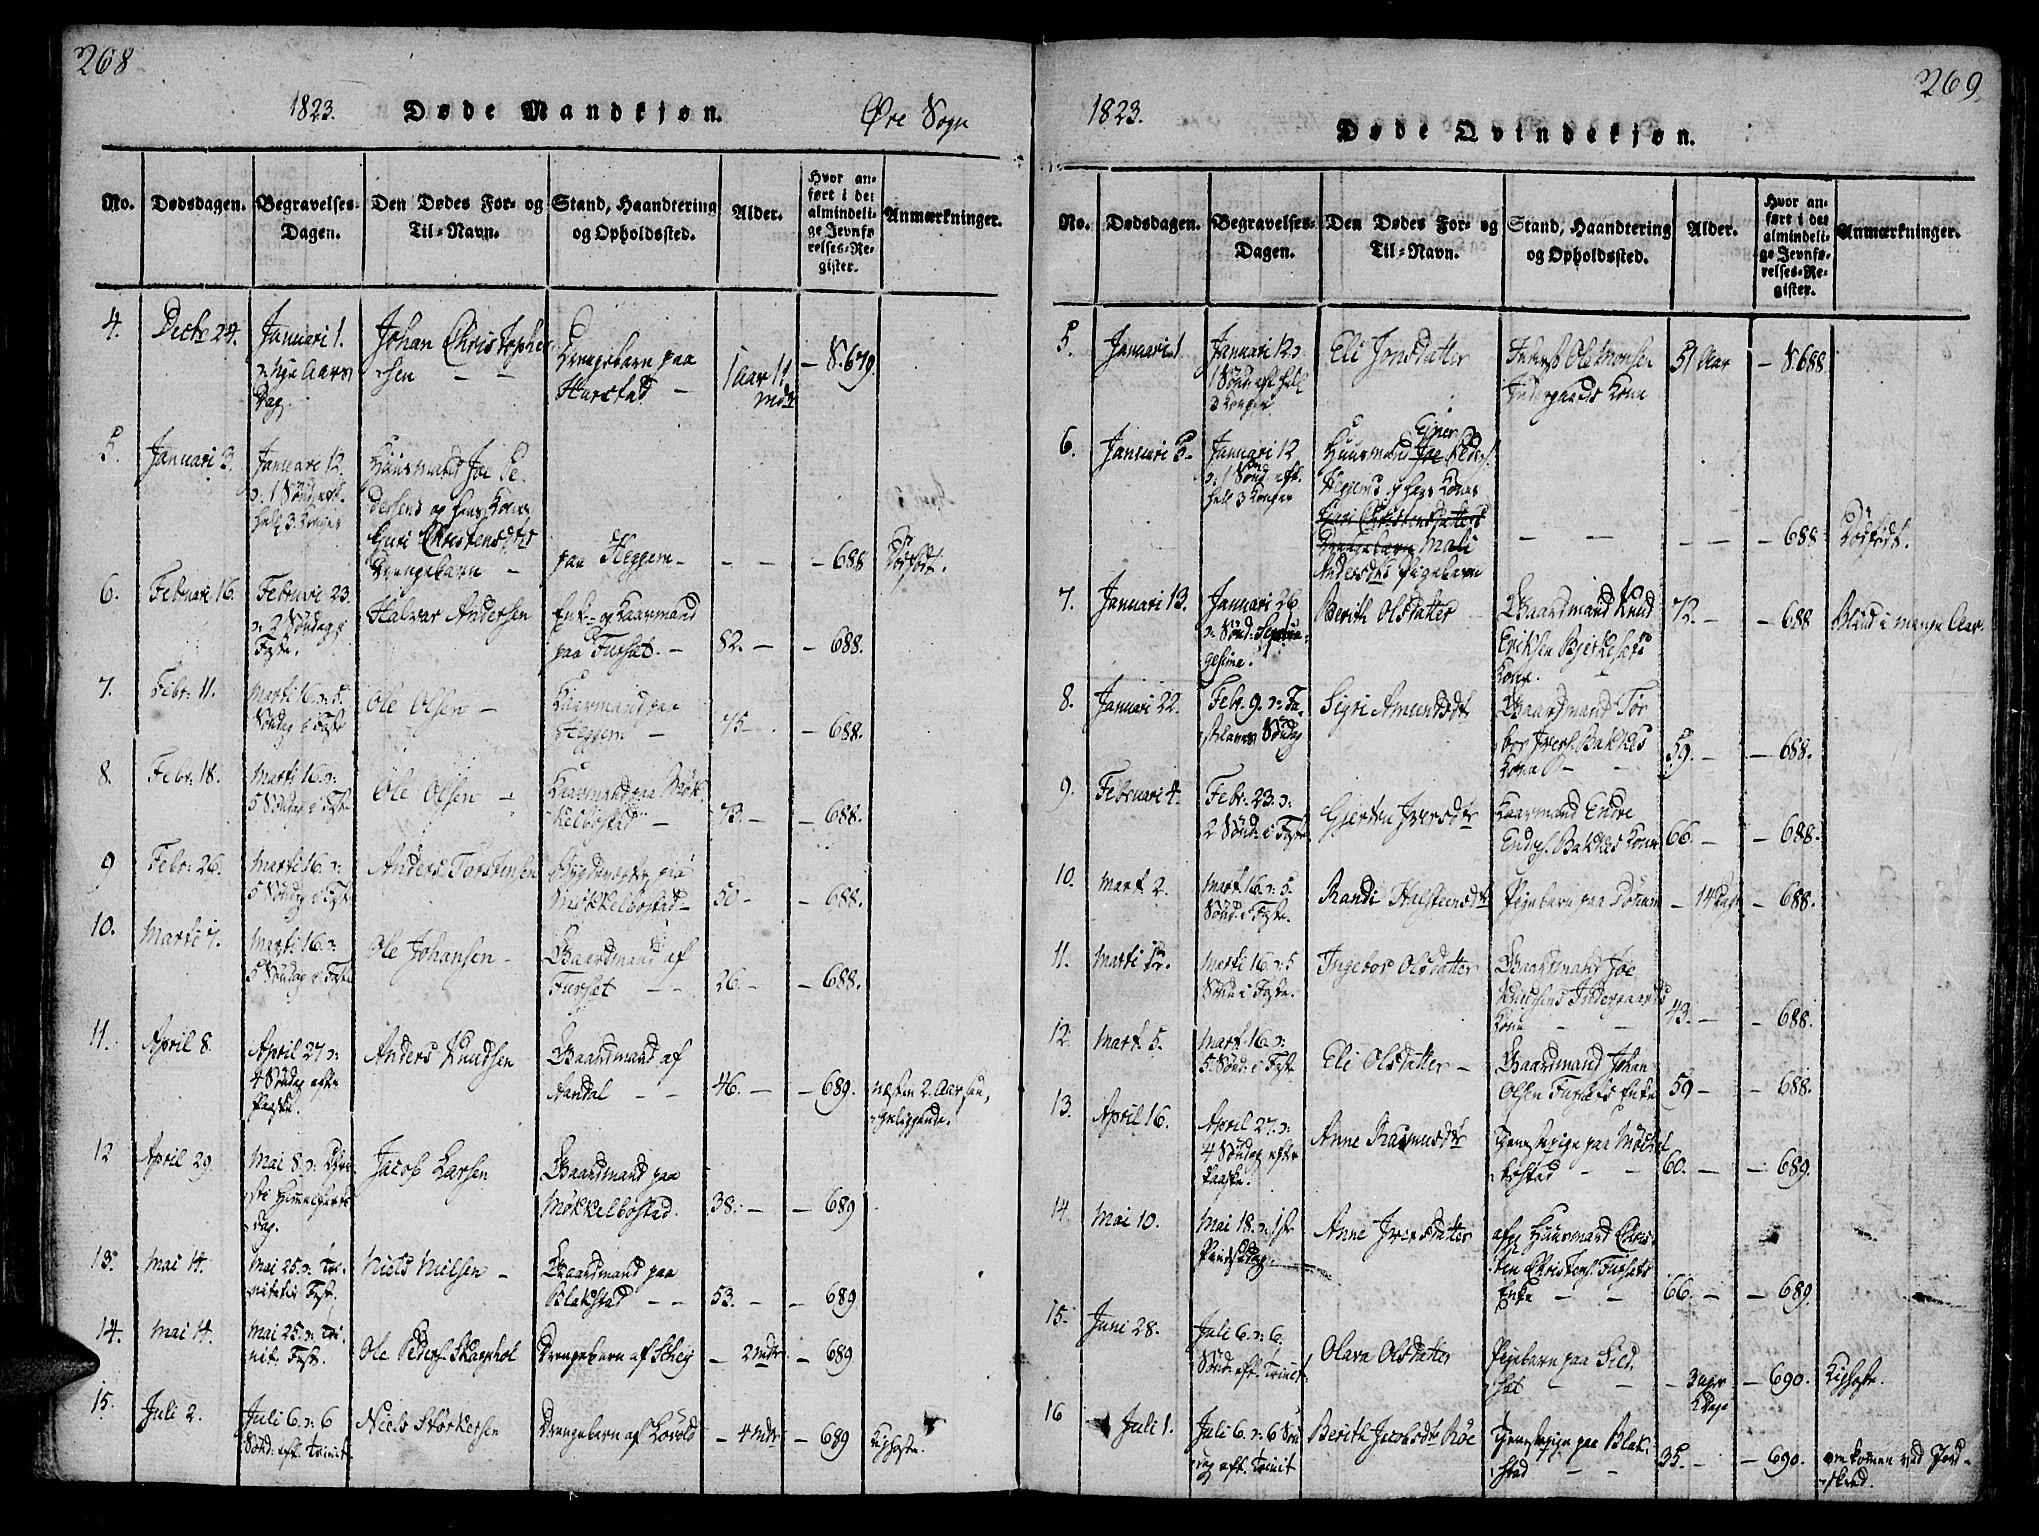 268
1823.
Døde Mandkjøn.
Øre Sogn
No.
Dødsdagen.
Begravelses-
Dagen.
Den Dødes For- og
Til-Navn.
Stand, Haandtering
og Opholdssted.
Alder.
Hvor an-
ført i det
almindeli-
ge Jevnfø-
relses-Re-
gister.
Anmærkninger.
4.
Decbr 24.
Januari 1.
Nyt Aars
Dag.
Johan Christopher
sen
Drengebarn paa
Harstad
1 Aar 11
mdr
S. 679.
5.
Januari 3.
Januari 12.
1 Sønd. eft.
hell. 3 Konger
Huusmand Joe Pe-
dersens og hans Kones
Guri Christensdtrs
Drengebarn
paa Heggem
688
Dødfødt.
6.
Februari 16.
Februari 23.
2 Søndag i
Faste.
Halvar Andersen
Enke- og Kaarmand
paa Furset.
82.
688.
7.
Febr: 11.
Marti 16. 5.
Søndag i Faste
Ole Olsen
Kaarmand paa
Heggem
75.
688.
8.
Febr: 18.
Marti 16.
5 Søndag i Faste
Ole Olsen
Kaarmand paa Møk-
kelbostad
73.
688.
9
Febr: 26.
Marti 16.
5 Søndag i Faste
Anders Torstensen
paa
Mökkelbostad
50
688.
10.
Marti 7.
Marti 16.
5 Søndag i Faste
Ole Johansen
Gaardmand af
Furset
26.
688.
11.
April 8.
April 27.
4 Søndag efter
Paaske.
Anders Knudsen
Gaardmand af
Aandal
46.
689.
næsten 2 Aar sen-
geliggende.
12
April 29.
Mai 8. Chri-
sti Himmelfarts
Dag.
Jacob Larsen
Gaardmand paa
Mökkelbostad.
38.
689
13.
Mai 14.
Mai 25. Tri-
nitatis Fest.
Niels Nielsen
Gaardmand paa
Blakstad
53.
689
14.
Mai 14.
Mai 25. Tri-
nit. Fest.
Ole Peders. Skarshol
Drengebarn af Schei
2 mdr
689
15.
Juli 2.
Juli 6. 6
Sønd. eft. Trinit.
Niels Störkersen
Drengebarn af Lovold
4 mdr
689
Kighoste.
269
1823.
Døde Qvindekjøn.
No.
Dødsdagen.
Begravelses-
Dagen.
Den Dødes For- og
Til-Navn.
Stand, Haandtering
og Opholdssted.
Alder.
Hvor an-
ført i det
almindeli-
ge Jevnfø-
relses-Re-
gister.
Anmærkninger.
5.
Januari 1
Januari 12
1 Sønd. eft. hell.
3 Konger
Eli Jonsdatter
Inders. Ole Monsen
Indergaards Kone
51 Aar
S. 688
6.
Januari 5
Januari 12
1 Sønd. eft.
hell. 3 Konger
Einer
Huusmand Joe Peders.
Heggems og hans Kones
Guri Christensdatters
Drengebarn Mali
Andersdtrs Pigebarn
688
Dødfødt.
7.
Januari 13.
Januari 26
Sønd. Septua-
gesima.
Berith Olsdatter
Gaardmand Knud
Eriksen Bjerkesæts
Kone.
72.
688
Blind i mange Aar
8.
Januari 22.
Febr. 9. Fa-
stelavns Søndag
Sigri Amundsdtr
Gaardmand Tor-
bør Ivers. Bakkes
Kone
59.
688.
9.
Februari 4.
Febr. 23.
2 Sønd. i Faste
Gjertru Iversdtr
Kaarmand Endre
Endres. Bakkes Kone
66.
688.
10.
Mart 2.
Mart 16. 5.
Sønd. i Faste.
Randi Halsteensdtr
Pigebarn paa
14 Dage
688.
11.
Marti 12.
Marti 16. 5
Sønd. i Faste.
Ingebor Olsdatter
Gaardmand Joe
Knudsens Indergaards
Kone
43.
688.
12.
Mart. 5.
Mart 16.
5. Sønd. i Faste
Eli Olsdatter
Gaardmand Johan
Olsen Fursets Enke
59
688.
13.
April 16.
April 27.
4 Søndag efter
Paaske.
Anne Rasmusdtr
Tjenestepige paa Møckel-
bostad
60.
689.
14.
Mai 10.
Mai 18. 1ste
Pindsedag
Anne Iversdatter
afg. Huusmand Chris-
ten Christens. Fursets
Enke
66.
689.
15.
Juni 28.
Juli 6. 6.
Sønd. eft. Trinit.
Olava Olsdatter
Pigebarn paa Sild-
set
3 uger
Dage
690.
Kighoste.
16
Juli 1.
Juli 6. 6 Søn-
dag eft. Trinit
Berith Jacobsdtr Röe
Tjenestepige paa Blak-
stad
35.
690.
omkommen ved Jord-
skred.